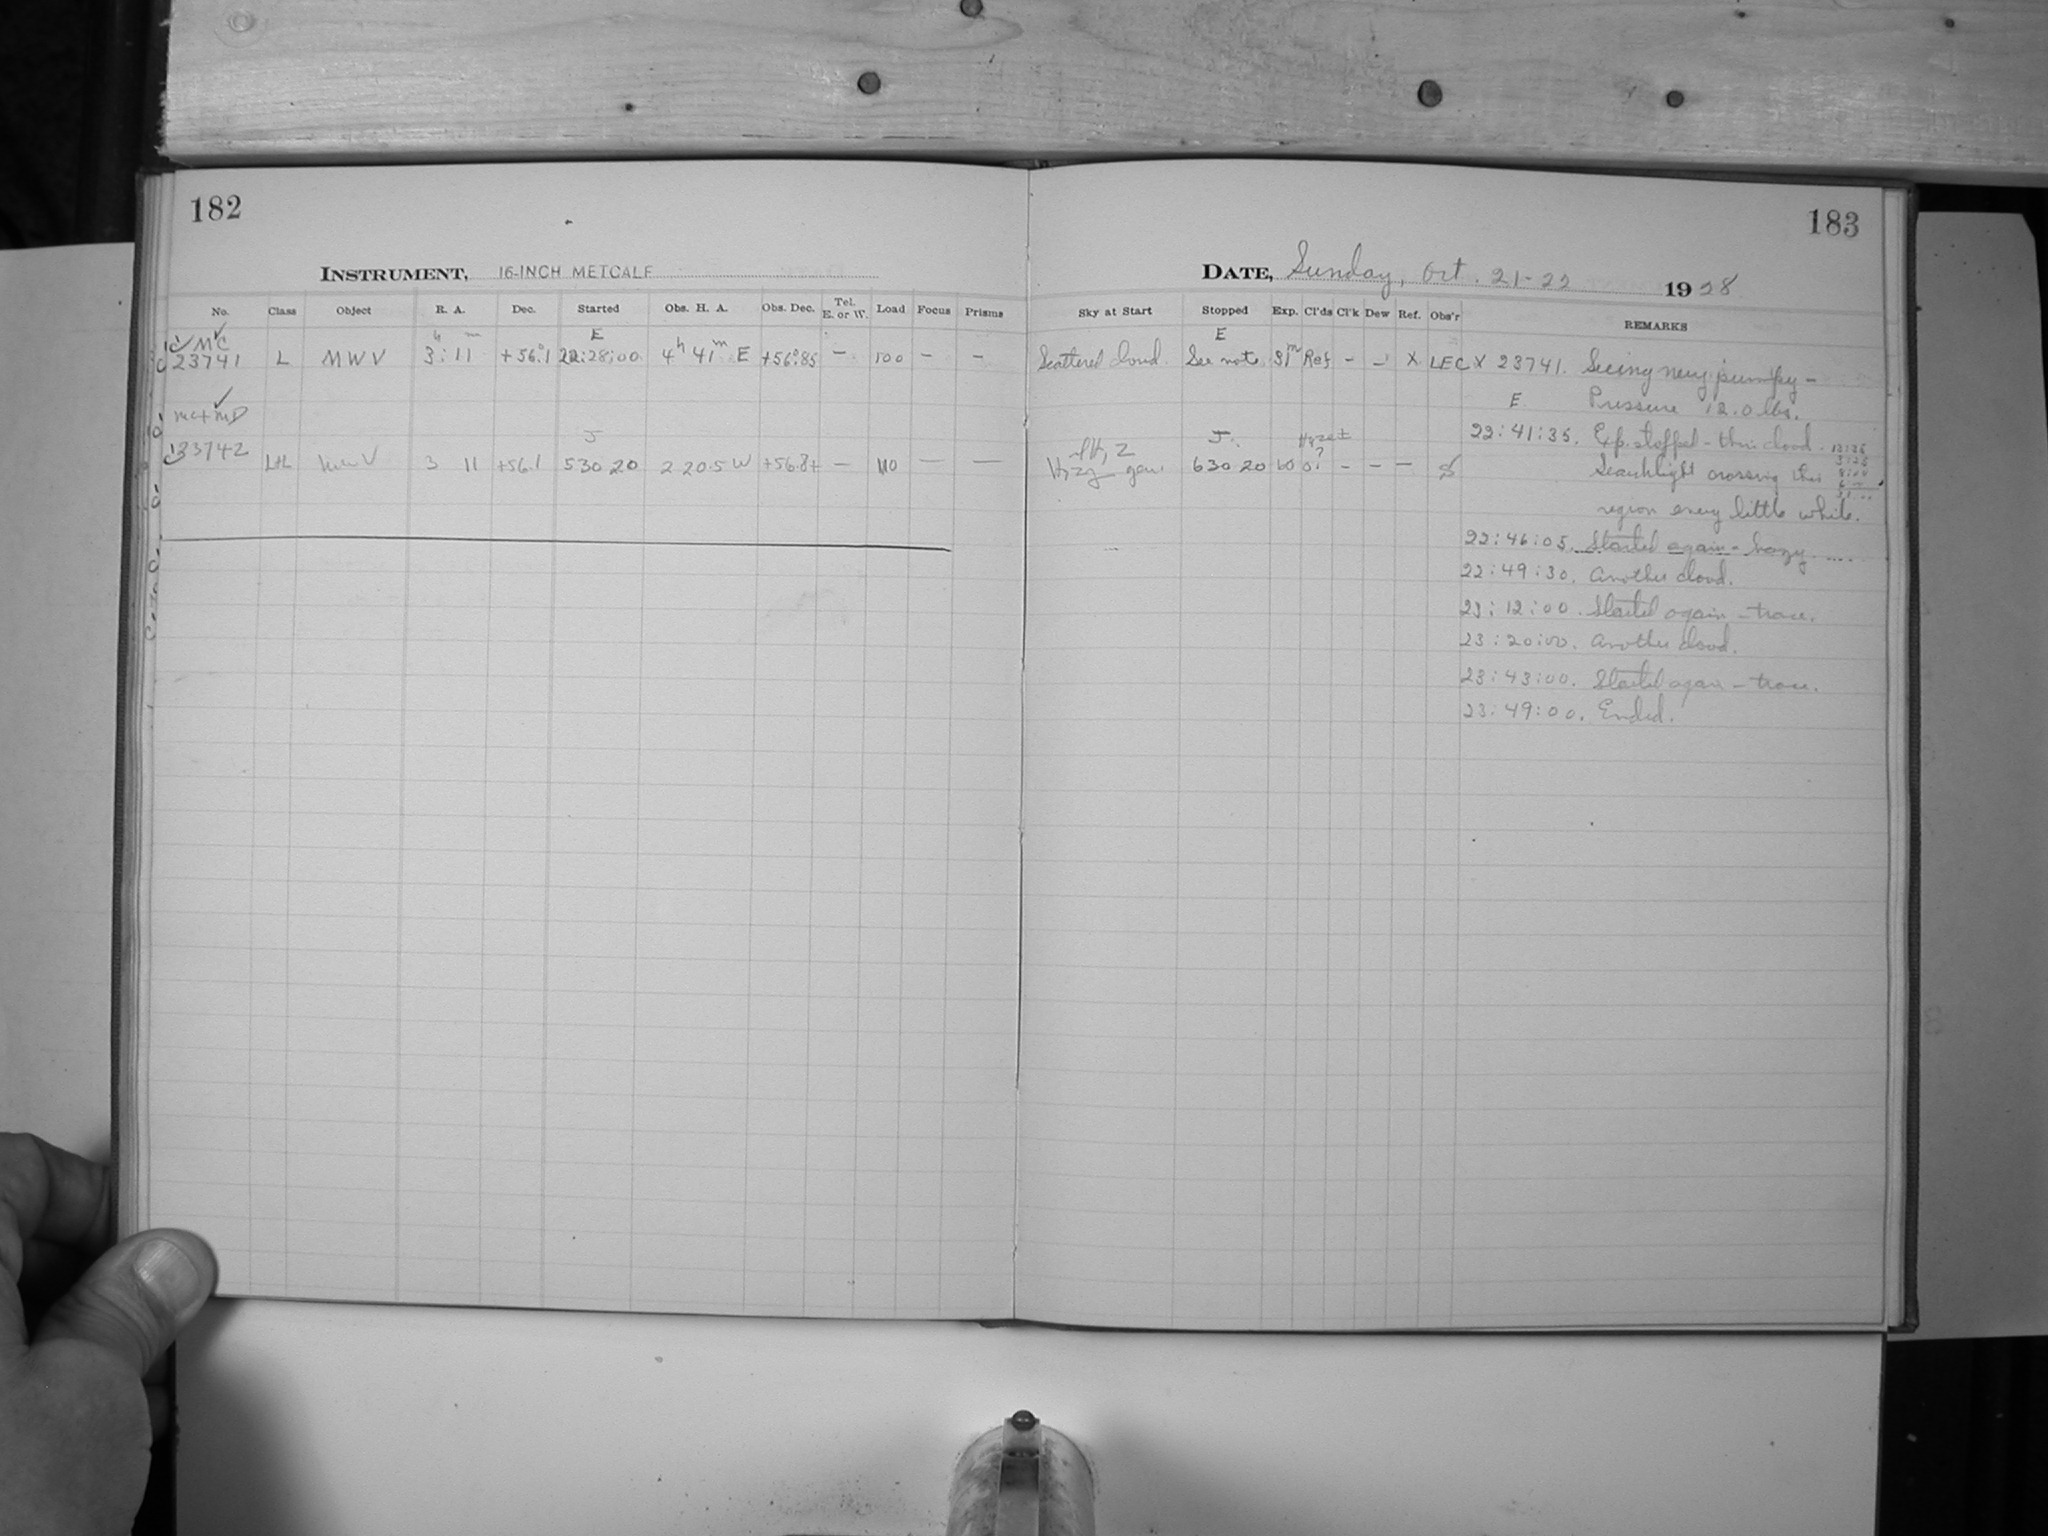 182
INSTRUMENT, 16-INCH METCALF
No. Class Object R. A. Dec. Started Obs. H. A. Obs. Dec. Tel. E. or W. Load Focus Prisms
MC h m E
23741 L MWV 3:11 +56°.1 22:28:00 4h 41m E +56°.85 – 100 – –
MC+MD
J
23742 L+L MWV 3 11 +56.1 530 20 2 20.5 W +56.8+ — 110 — —
183
DATE, Sunday, Oct. 21-22 1928
Sky at Start Stopped Exp. Cl'ds Cl'k Dew Ref. Obs'r REMARKS
E
Scattered cloud See note 31m Ref – – X LEC X 23741. Seeing very jumpy –
E Pressure 12.0 lbs.
22:41:35. Exp. stopped – thin cloud. 13:35
J. Haze±
Hazy gen. 630 20 60 0? – – – Searchlight crossing this
region every little while.
22:46:05. Started again – hazy.
22:49:30. Another cloud.
23:12:00. Started again – trace.
23:20:00. Another cloud.
23:43:00. Started again – trace.
23:49:00. Ended.